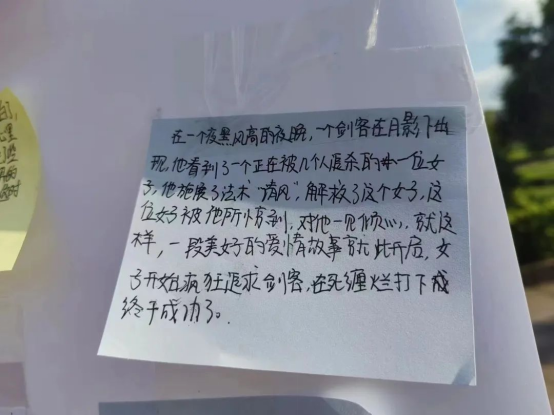 在一个夜黑风高的夜晚,一个剑客在月影下出
现,他看到了一个正在被几个人追杀的一位女
子,他施展了法术"清风",解救了这个女子,这
位女子被他所惊到,对他一见倾心,就这
样,一段美好的爱情故事就此开启,女
子开始疯狂追求剑客,在死缠烂打下
终于成功了。